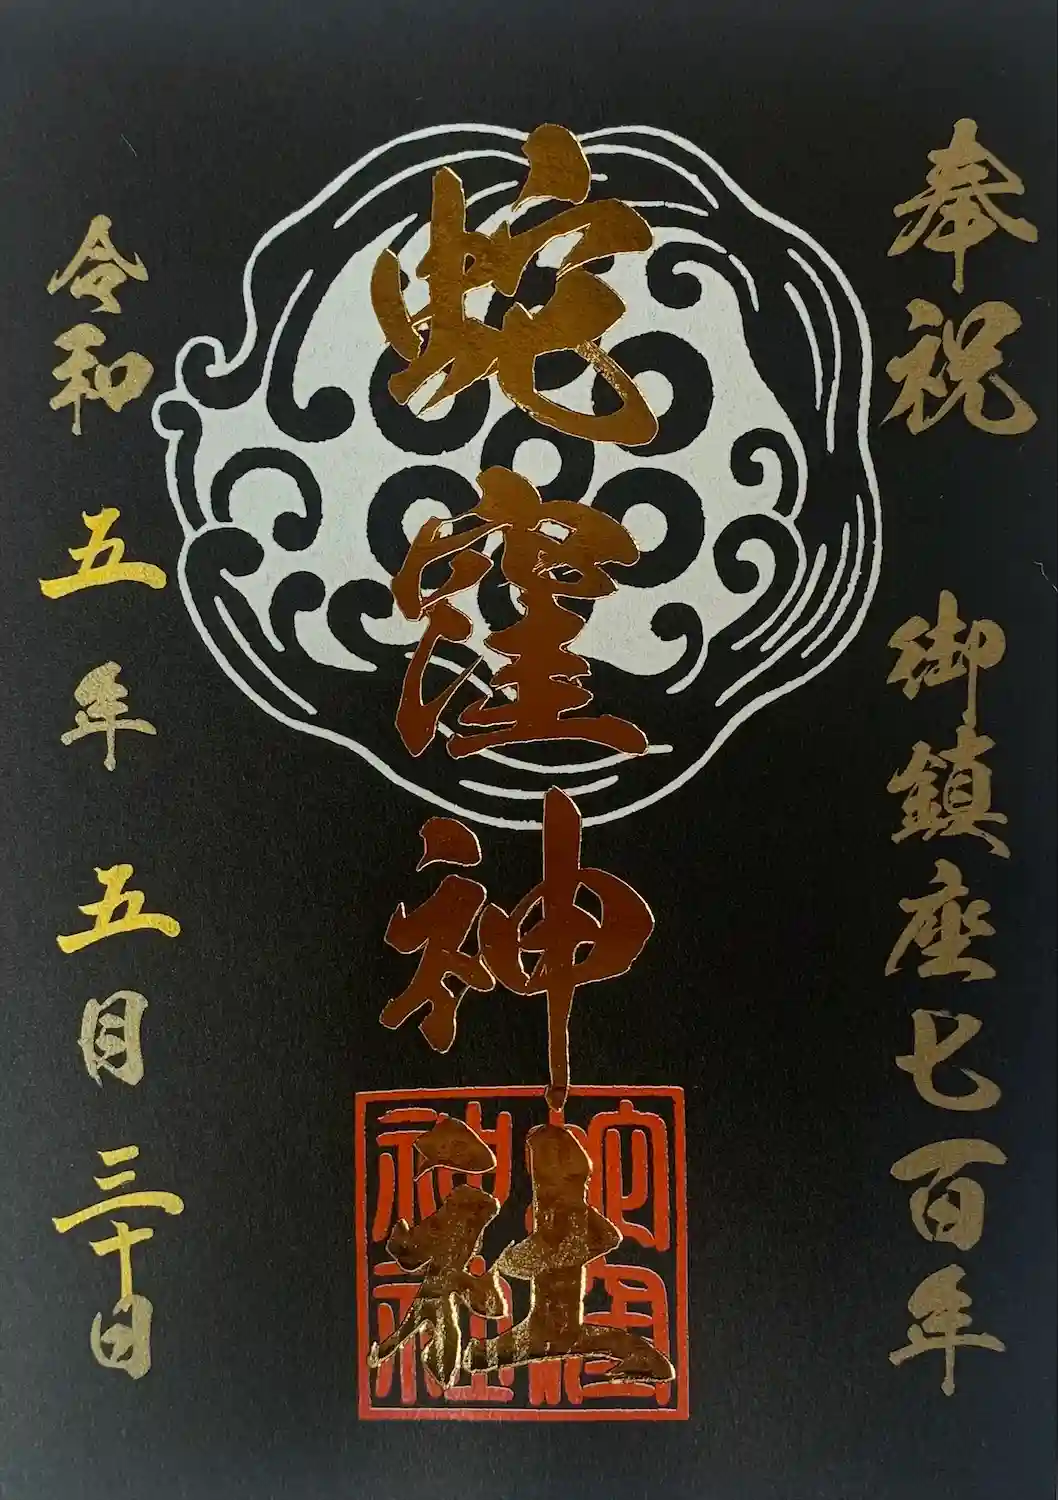 奉祝 御鎮座七百年
蛇窪神社
蛇窪
神社
令和五年五月三十日